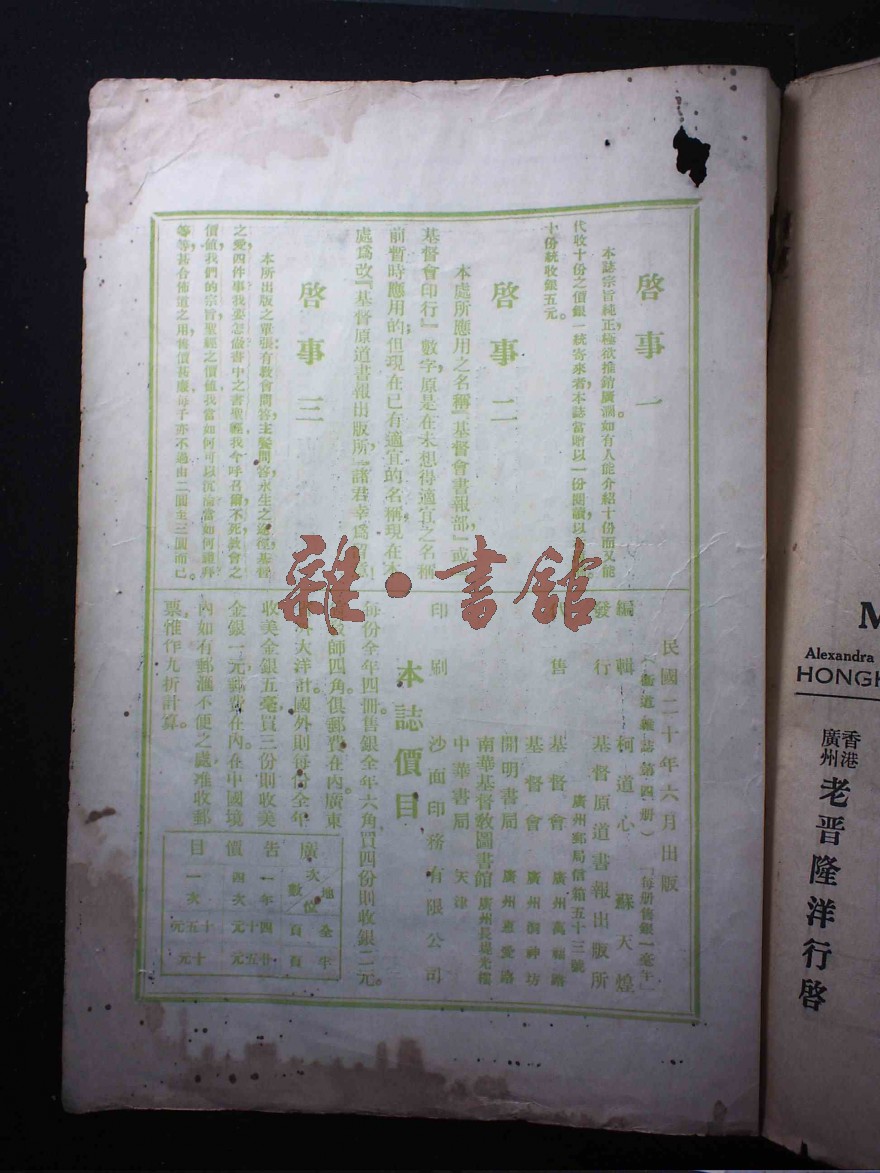 啓事一
本誌宗旨純正極欲推銷廣濶如有人能介紹十份而又能
代收十份之價銀一統寄來者本誌當贈以一份閱讀以
十份統收銀五元
啓事二
本處所應用之名稱「基督會書報部」或
基督會印行」數字原是在未想得適宜之名稱
前暫時應用的但現在已有適宜的名稱現在本
處爲改『基督原道書報出版所』諸君幸爲
啓事三
本所出版之單張有教會問答主餐問答永生之途徑基督
之愛四件事我要怎樣書中之書聖經我今呼召爾不死
價値我們的宗旨聖經之價値我當如何可以
等等甚合佈道之用價甚廉每千亦不過由二圓至三圓而已
民國二十年六月出版
(衞道雜誌第四册)「每册售銀一毫半」
編輯 柯道心 蘇天煌
發行 基督原道書報出版所
廣州郵局信箱五十三號
售 基督會 廣州萬福路
基督會 廣州洞神坊
開明書局 廣州惠愛路
南華基督敎圖書館 廣州長堤光樓
中華書局 天津
印刷 沙面印務有限公司
本誌價目
每份全年四册售銀全年六角買四份則收銀二元
師四角俱郵費在內廣東
大洋計國外則每份全年
收美金銀五毫買三份則收美
金銀一元郵費在內在中國境
內如有郵滙不便之處准收郵
票惟作九折計算
廣告價目
地位 次數 全頁 半頁
一年四次 四十元 廿五元
一次 十五元 十元
雜·書館
M
Alexandra
HONGK
香港
廣州
老晋隆洋行啓